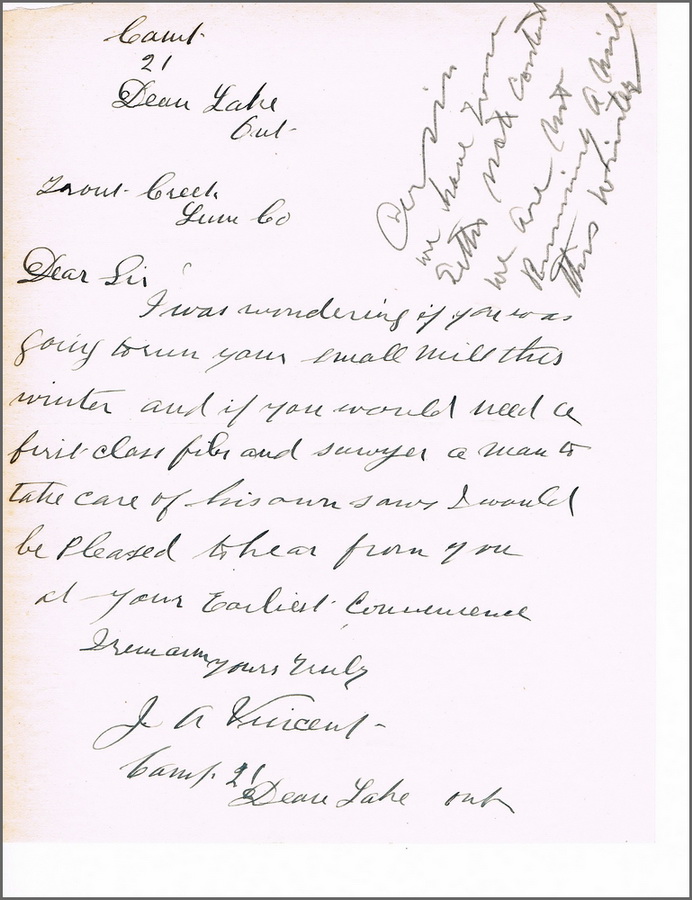 Camp
21
Dean Lake
Ont
Trout Creek
Lum Co
Dear Sir
I was wondering if you was
going to run your small mill this
winter and if you would need a
first class filer and sawyer a man to
take care of his own saws I would
be Pleased to hear from you
at your Earliest Convenience
I remain yours Truly
J A Vincent
Camp 21
Dean Lake ont
Dear Sir
we have your
Letter
we are not
Running a mill
this winter